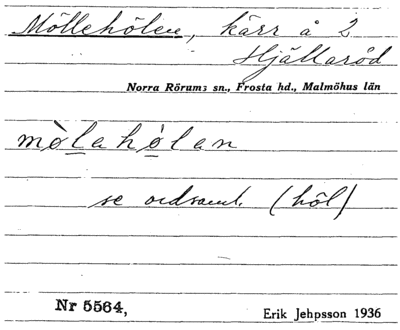 Mölleholen, kärr å 2
Hjällaröd
Norra Rörums sn., Frosta hd., Malmöhus län
mòlahòlan
se ordsaml. (höl)
Nr 5564,
Erik Jehpsson 1936